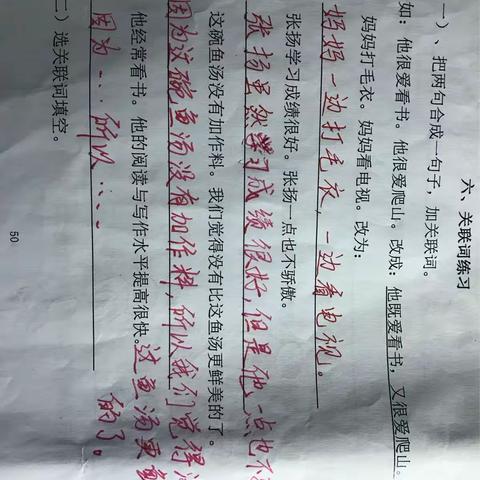 六、关联词练习
一）、把两句合成一句子，加关联词。
如：他很爱看书。他很爱爬山。改成：他既爱看书，又很爱爬山。
妈妈打毛衣。妈妈看电视。改为：
妈妈一边打毛衣，一边看电视。
张扬学习成绩很好。张扬一点也不骄傲。
张扬虽然学习成绩很好，但是他一点也不
这碗鱼汤没有加作料。我们觉得没有比这鱼汤更鲜美的了。
因为这碗鱼汤没有加作料，所以我们觉得没
这鱼汤更鲜
的了。
他经常看书。他的阅读与写作水平提高很快。
因为……所以……
二）选关联词填空。
50